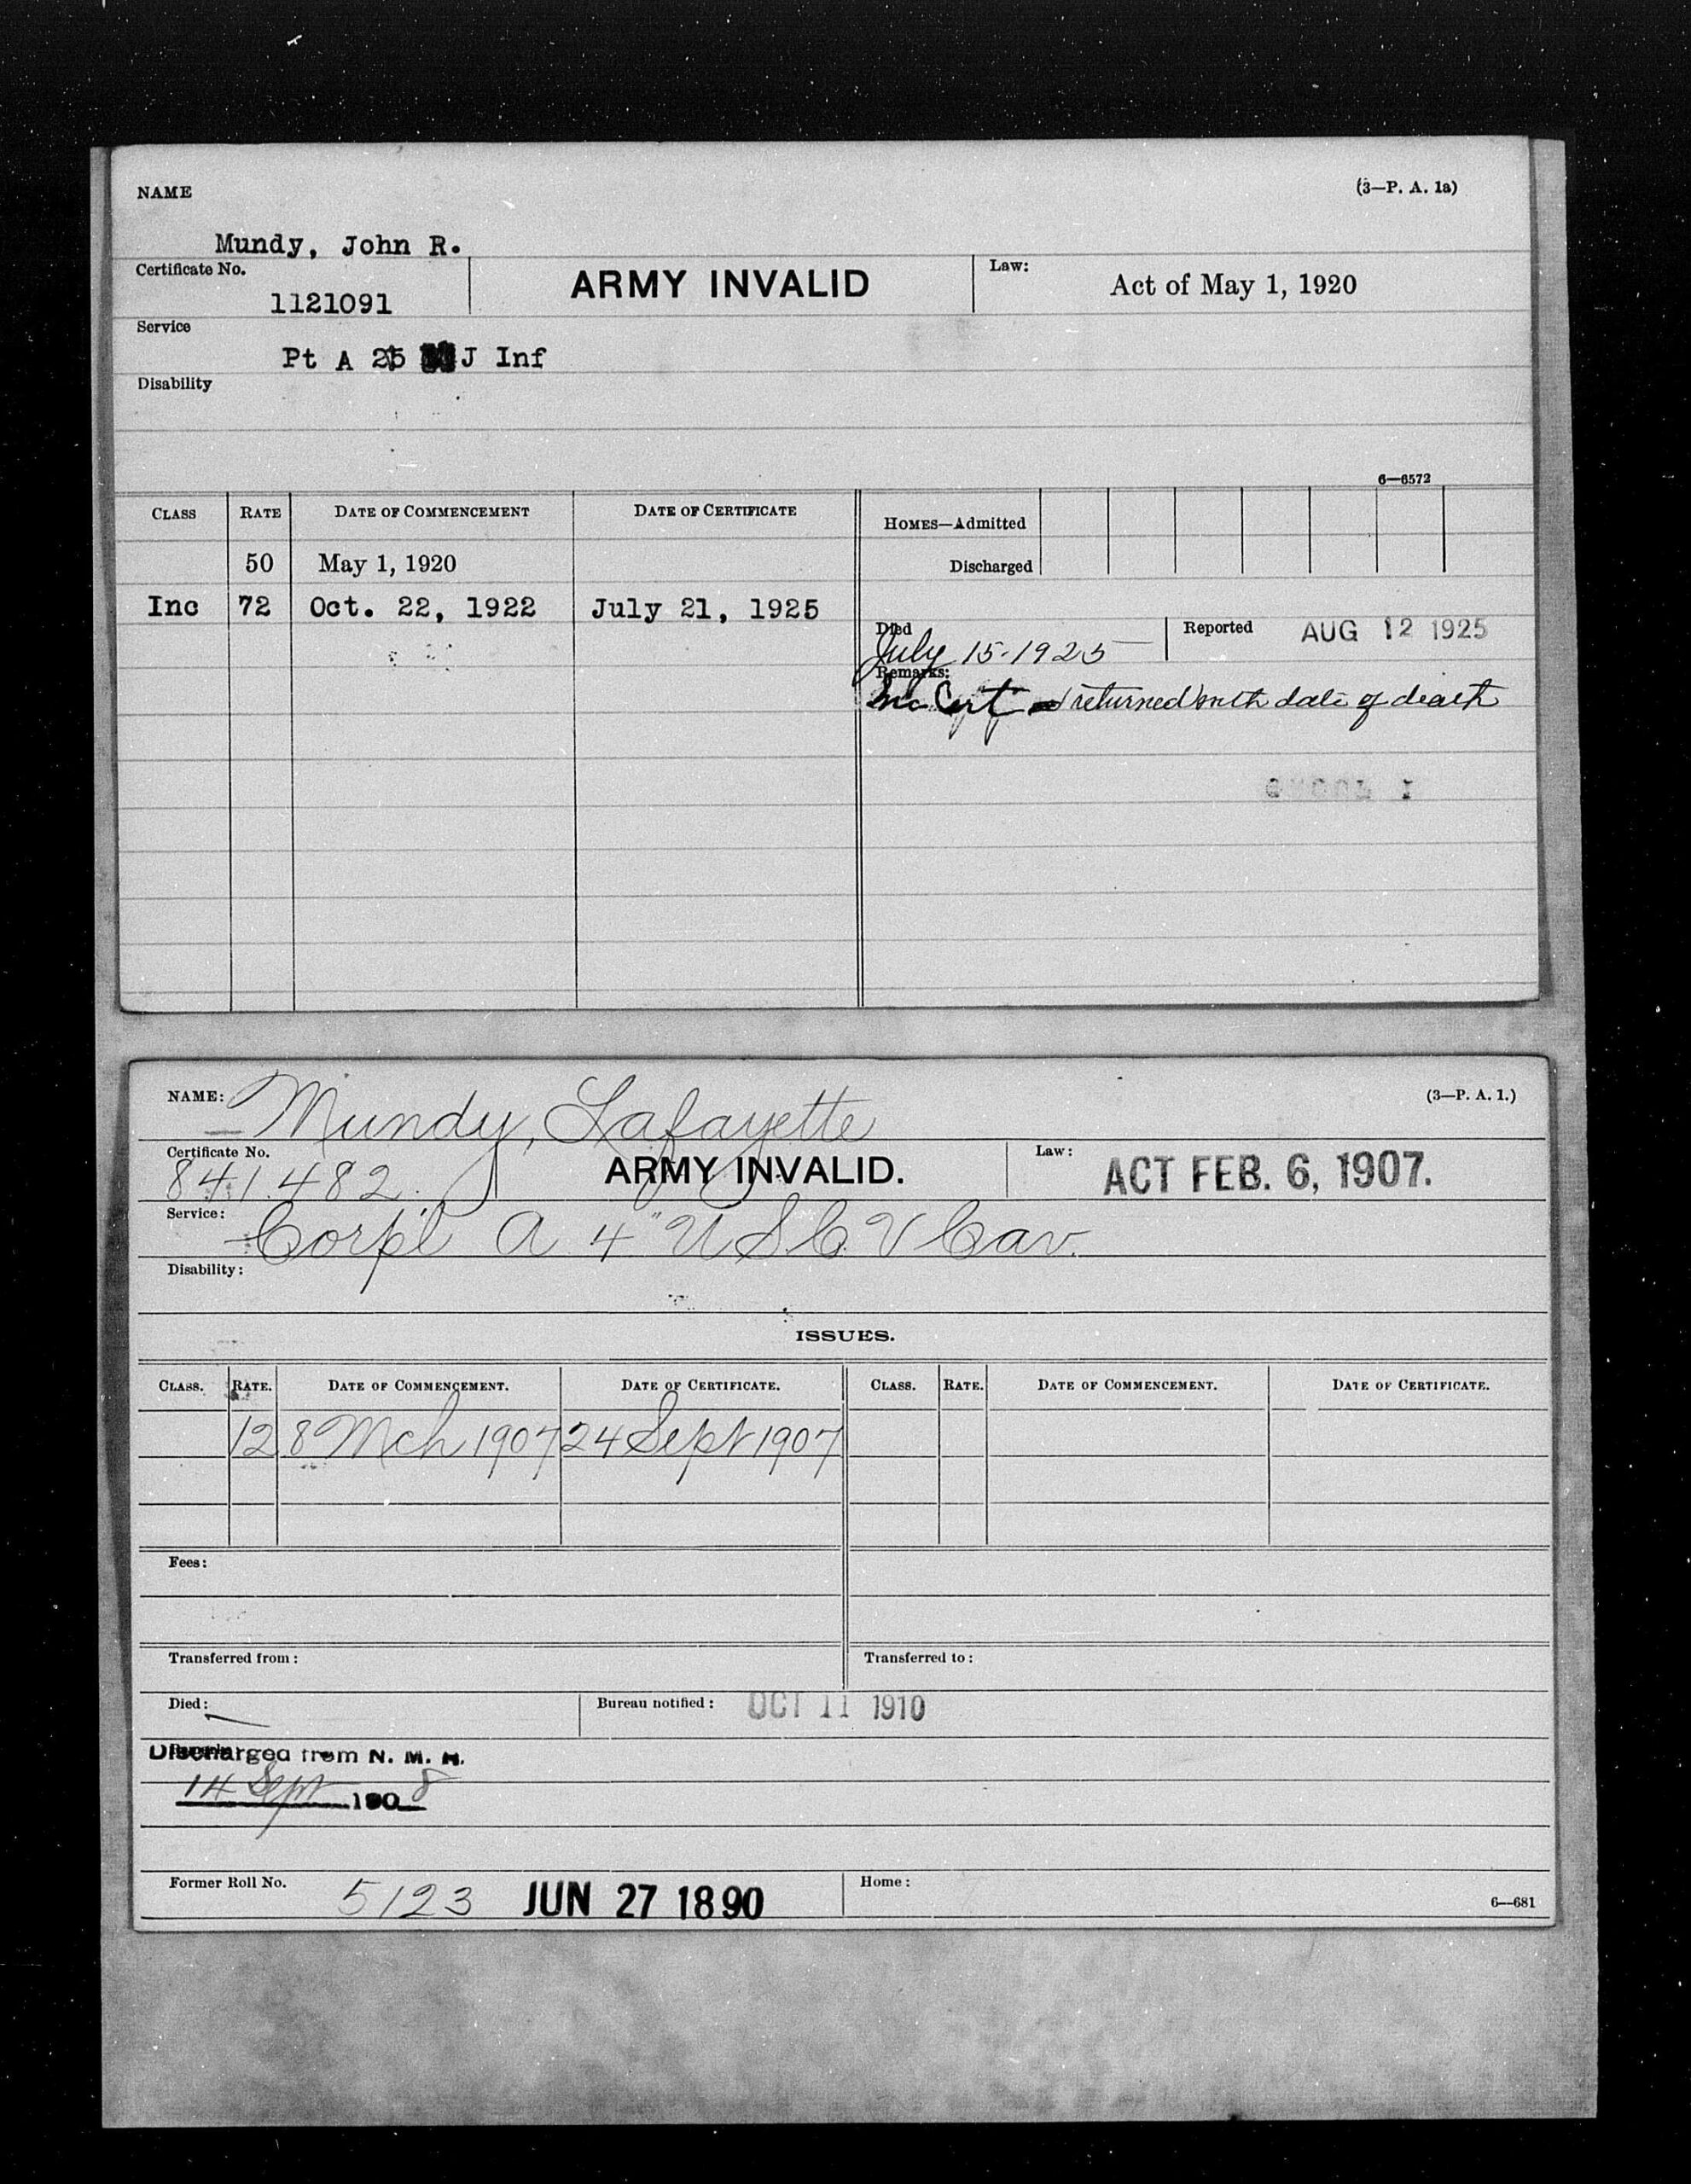 NAME
(3—P. A. 1a)
Mundy, John R.
Certificate No.
1121091
ARMY INVALID
Law:
Act of May 1, 1920
Service
Pt A 25 J Inf
Disability
6—6572
CLASS RATE DATE OF COMMENCEMENT DATE OF CERTIFICATE
HOMES—Admitted
Discharged
50 May 1, 1920
Inc 72 Oct. 22, 1922 July 21, 1925
Died
July 15-1925
Reported AUG 12 1925
Remarks:
Inc Cert returned with date of death
NAME: Mundy, Lafayette
(3—P. A. 1.)
Certificate No.
841.482.
ARMY INVALID.
Law:
ACT FEB. 6, 1907.
Service: Corp'l A 4" U S C V Cav.
Disability:
ISSUES.
CLASS. RATE. DATE OF COMMENCEMENT. DATE OF CERTIFICATE. CLASS. RATE. DATE OF COMMENCEMENT. DATE OF CERTIFICATE.
12 8 Mch 1907 24 Sept 1907
Fees:
Transferred from:
Transferred to:
Died:
Bureau notified: OCT 11 1910
Discharged from N. M. H.
14 Sept 1908
Former Roll No. 5123 JUN 27 1890
Home:
6—681